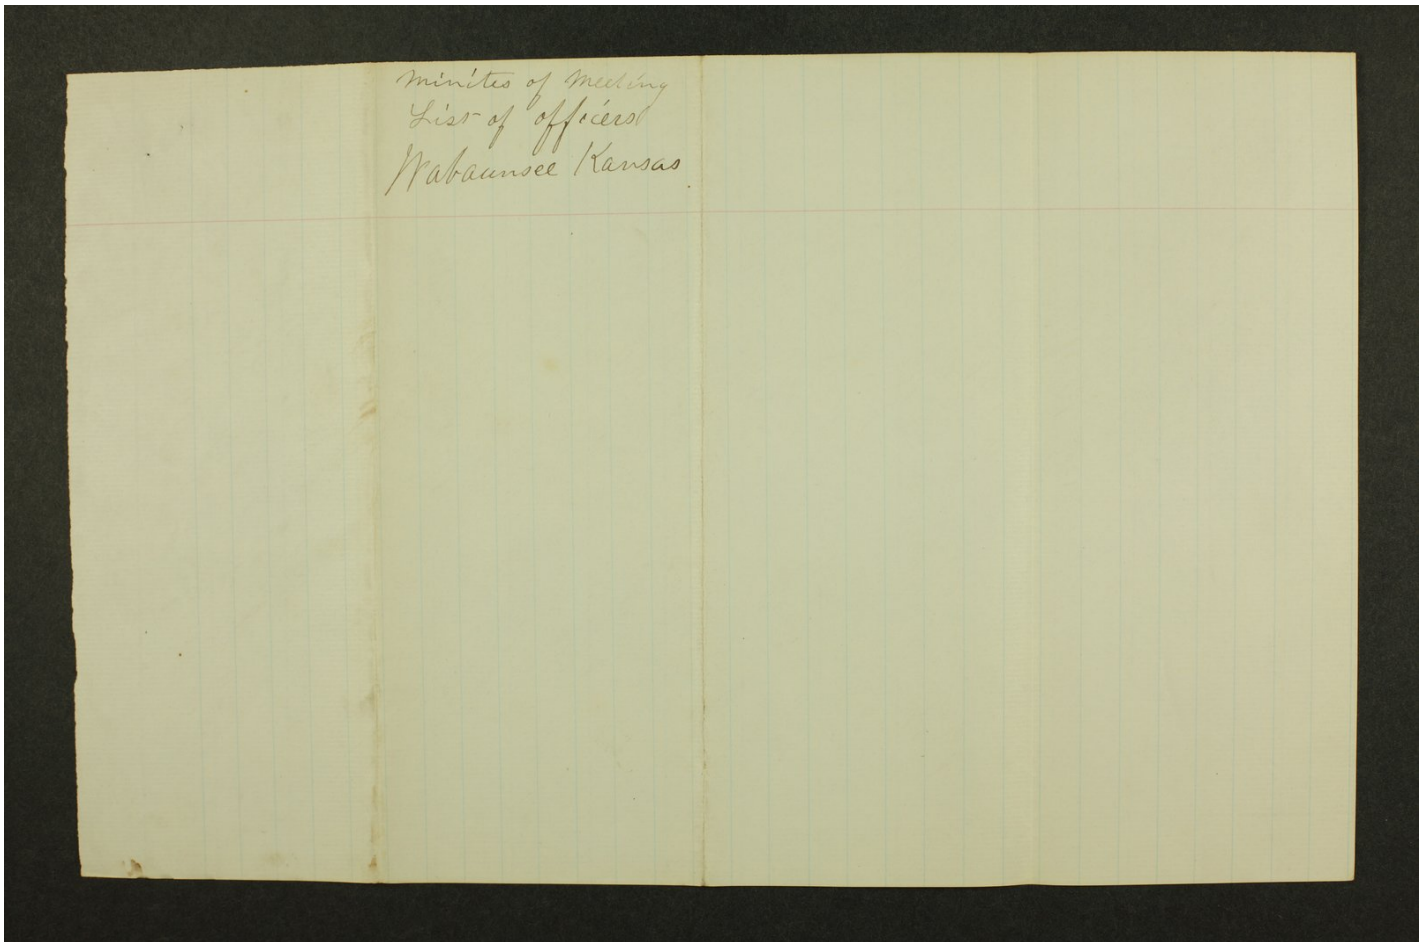 Minites of Meeting
List of officers
Wabaunsee Kansas